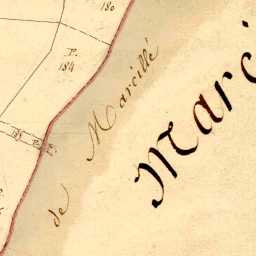 180
P.
184
de Marcillé
Marc